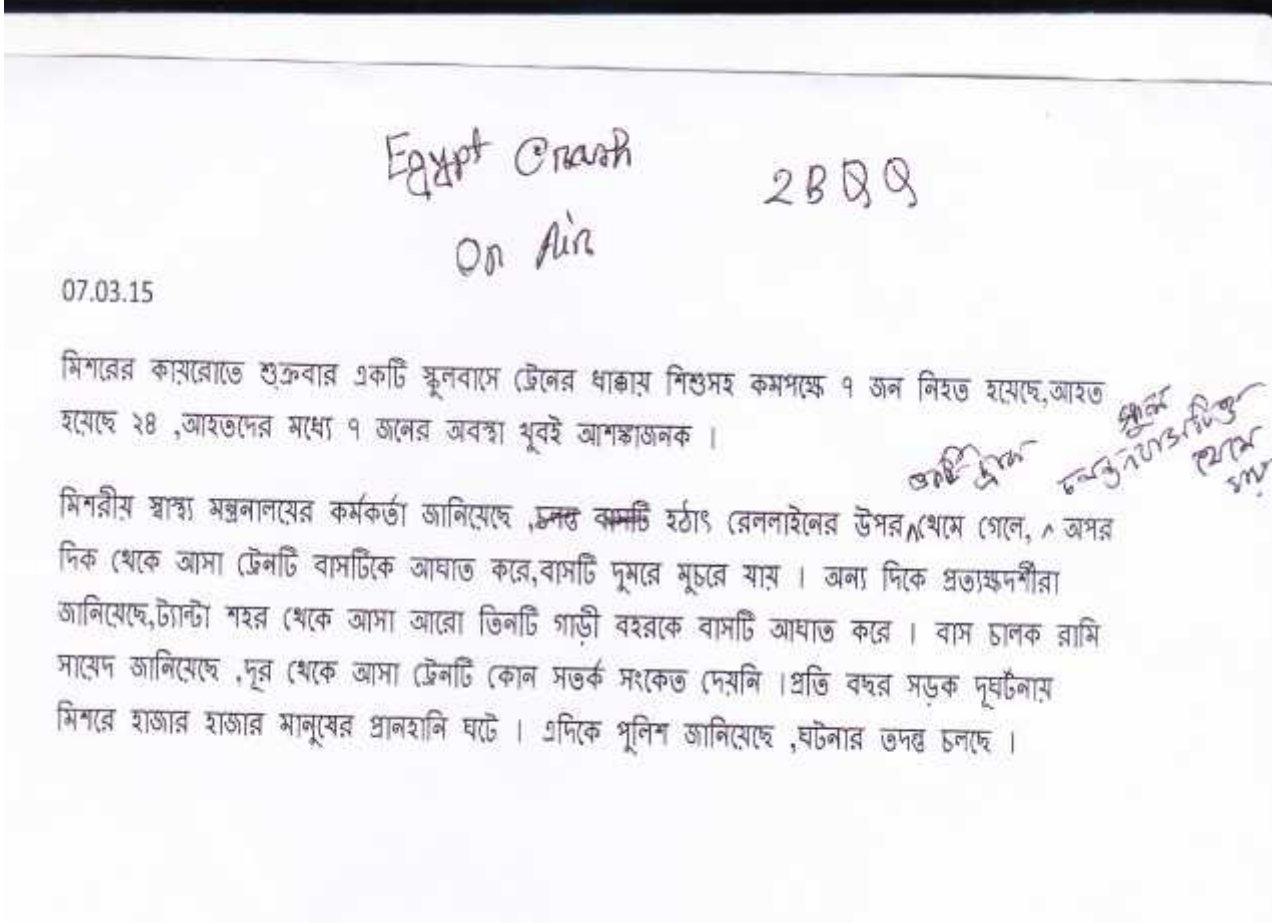 Egypt Crash
2BQQ
On Air
07.03.15
মিশরের কায়রোতে শুক্রবার একটি স্কুলবাসে ট্রেনের ধাক্কায় শিশুসহ কমপক্ষে ৭ জন নিহত হয়েছে,আহত
হয়েছে ২৪ ,আহতদের মধ্যে ৭ জনের অবস্থা খুবই আশঙ্কাজনক ।
একটি ট্রাক
স্কুল
চলন্ত বাসটিও
থেমে
যায়
মিশরীয় স্বাস্থ্য মন্ত্রনালয়ের কর্মকর্তা জানিয়েছে ,চলন্ত বাসটি হঠাৎ রেললাইনের উপর থেমে গেলে, অপর
দিক থেকে আসা ট্রেনটি বাসটিকে আঘাত করে,বাসটি দূমরে মূচরে যায় । অন্য দিকে প্রত্যক্ষদর্শীরা
জানিয়েছে,ট্যান্টা শহর থেকে আসা আরো তিনটি গাড়ী বহরকে বাসটি আঘাত করে । বাস চালক রামি
সায়েদ জানিয়েছে ,দূর থেকে আসা ট্রেনটি কোন সতর্ক সংকেত দেয়নি ।প্রতি বছর সড়ক দূর্ঘটনায়
মিশরে হাজার হাজার মানুষের প্রানহানি ঘটে । এদিকে পুলিশ জানিয়েছে ,ঘটনার তদন্ত চলছে ।